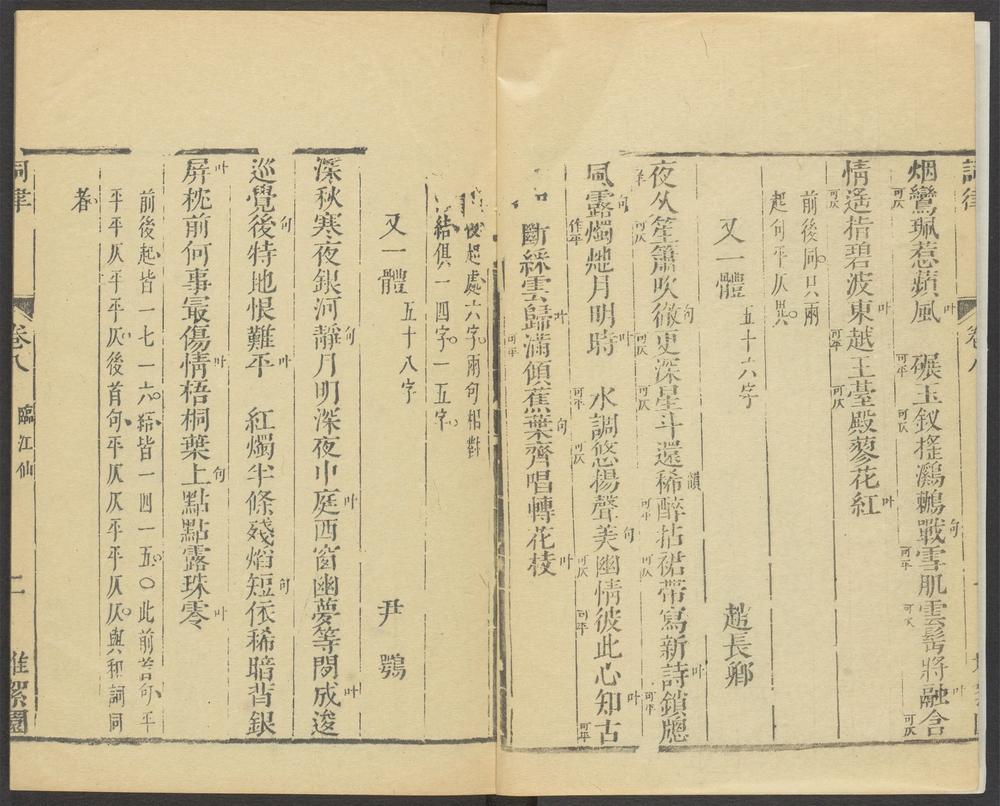 詞律 卷八
烟鸞可仄珮惹蘋風叶 碾可平玉釵可仄搖鸂鶒戰句雪可平肌雲可仄鬂將融叶含可仄
情遙可仄指碧波東叶越可平王臺可仄殿蓼花紅叶
前後同只兩
起句平仄異
又一體 五十六字 趙長卿
夜久笙可仄簫吹徹句更可仄深星可仄斗還稀韻醉可平拈裙可仄帶寫新詩叶鎖可平牕
風露句燭作平灺月明時叶 水可平調悠可仄揚聲美句幽可仄情彼可平此心知叶古可平
斷綵雲歸叶滿可平傾蕉葉句齊唱轉花枝叶
後起處六字兩句相對
結俱一四字一五字
又一體 五十八字 尹鶚
深秋寒夜銀河靜句月明深夜中庭叶西窗幽夢等閒成叶逡
巡覺後句特地恨難平叶 紅燭半條殘焰短句依稀暗背銀
屏叶枕前何事最傷情叶梧桐葉上句點點露珠零叶
前後起皆一七一六結皆一四一五〇此前首句平
平平仄平平仄後首句平仄仄平平仄仄與和詞同
者
詞律 卷八 臨江仙 二 堆絮園